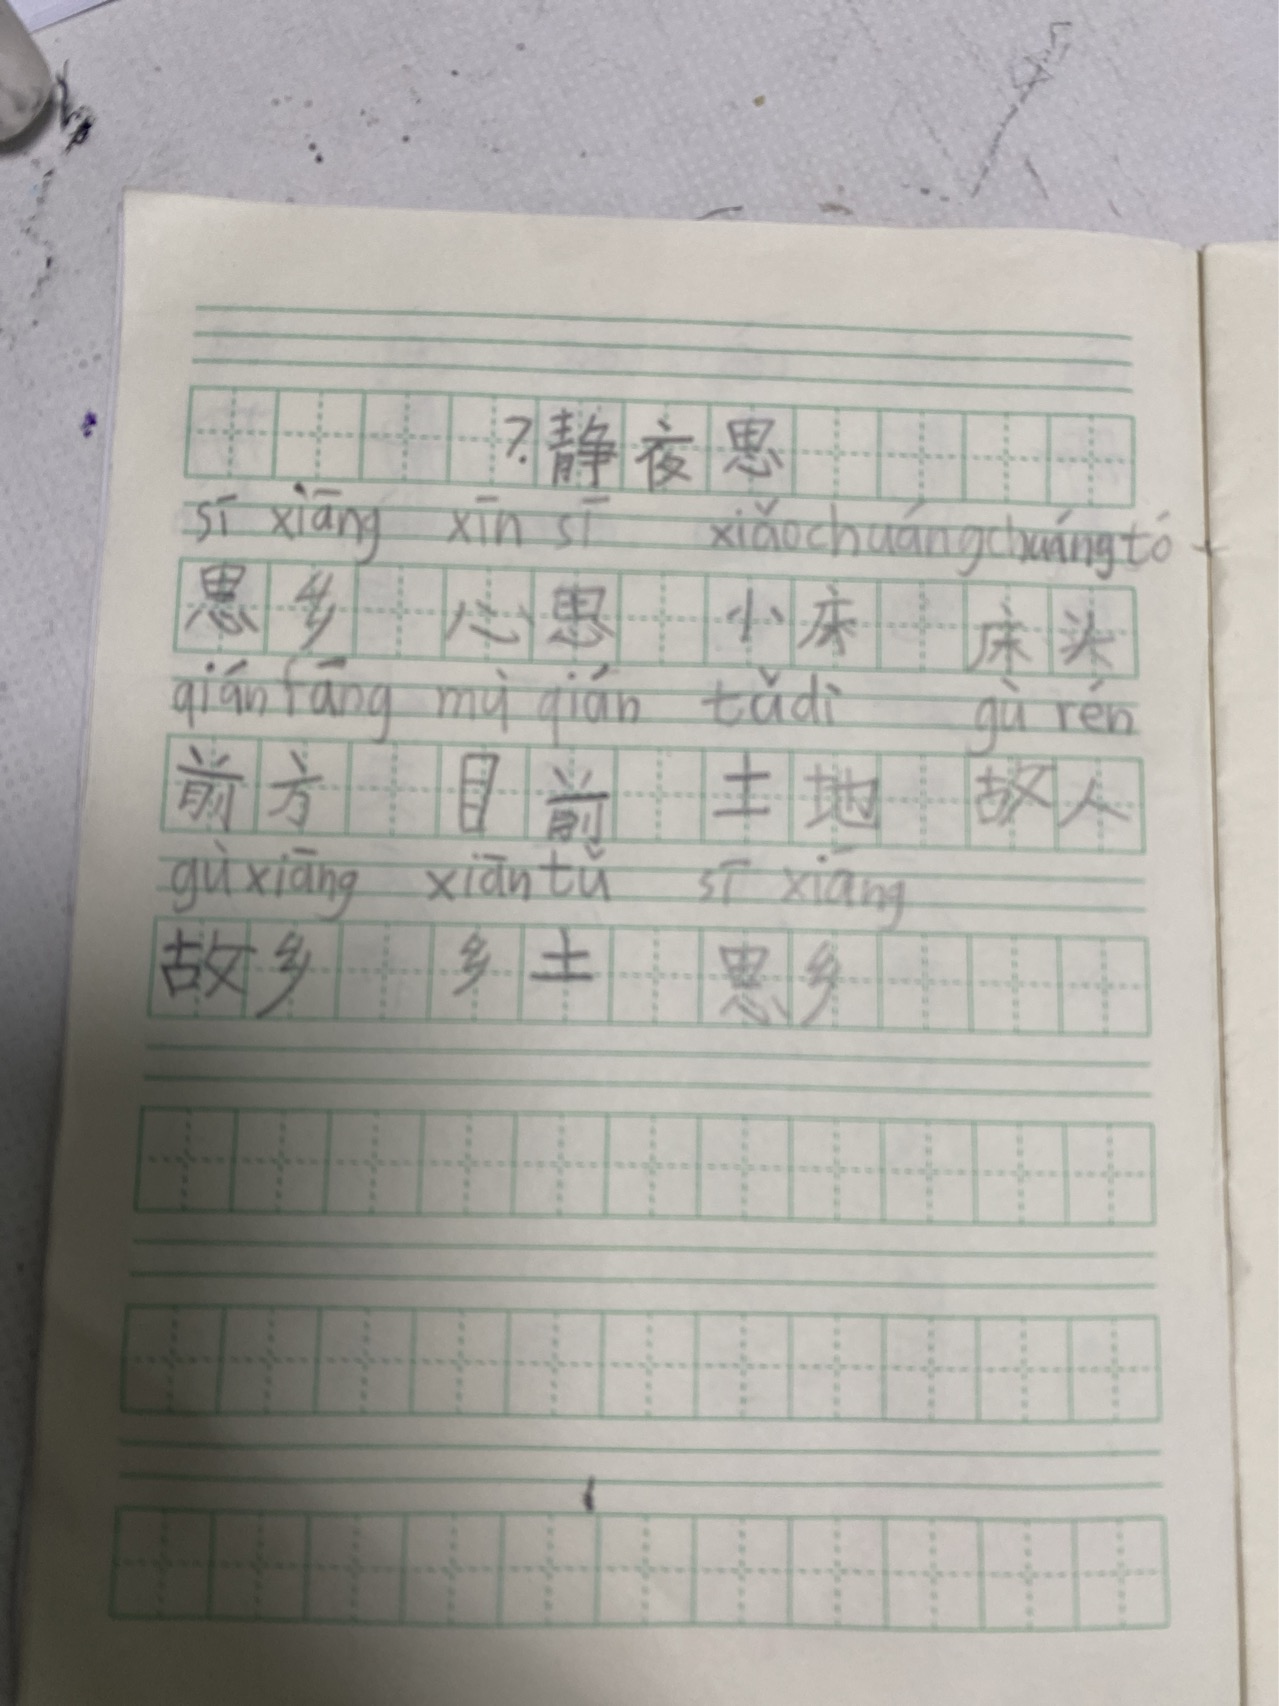 7.静夜思
sī xiāng xīn sī xiǎo chuáng chuáng tó
思乡 心思 小床 床头
qián fāng mù qián tǔ dì gù rén
前方 目前 土地 故人
gù xiāng xiān tǔ sī xiāng
故乡 乡土 思乡